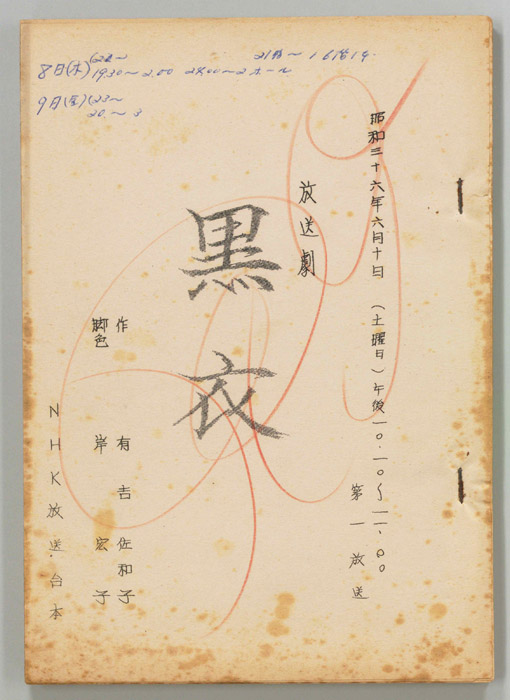 8日(木) (22〜 21時〜 161スタ.
19.30〜2.00 24.00〜2ホール
9日(金) (23〜
20.〜3
昭和三十六年六月十日 (土曜日)午後一〇.一〇〜一一、〇〇
第一放送
放送劇
黒衣
作 有吉佐和子
脚色 岸宏子
NHK放送台本